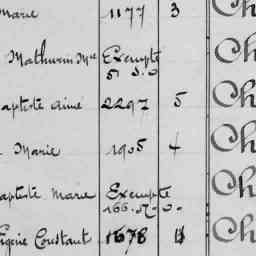 Marie 1177 3 Ch
Mathurin Mie Exempte Ch
5 S. O
aptiste aimé 2297 5 Ch
Marie 1905 4 Ch
aptiste Marie Exempte Ch
166.
Constant 1678 Ch